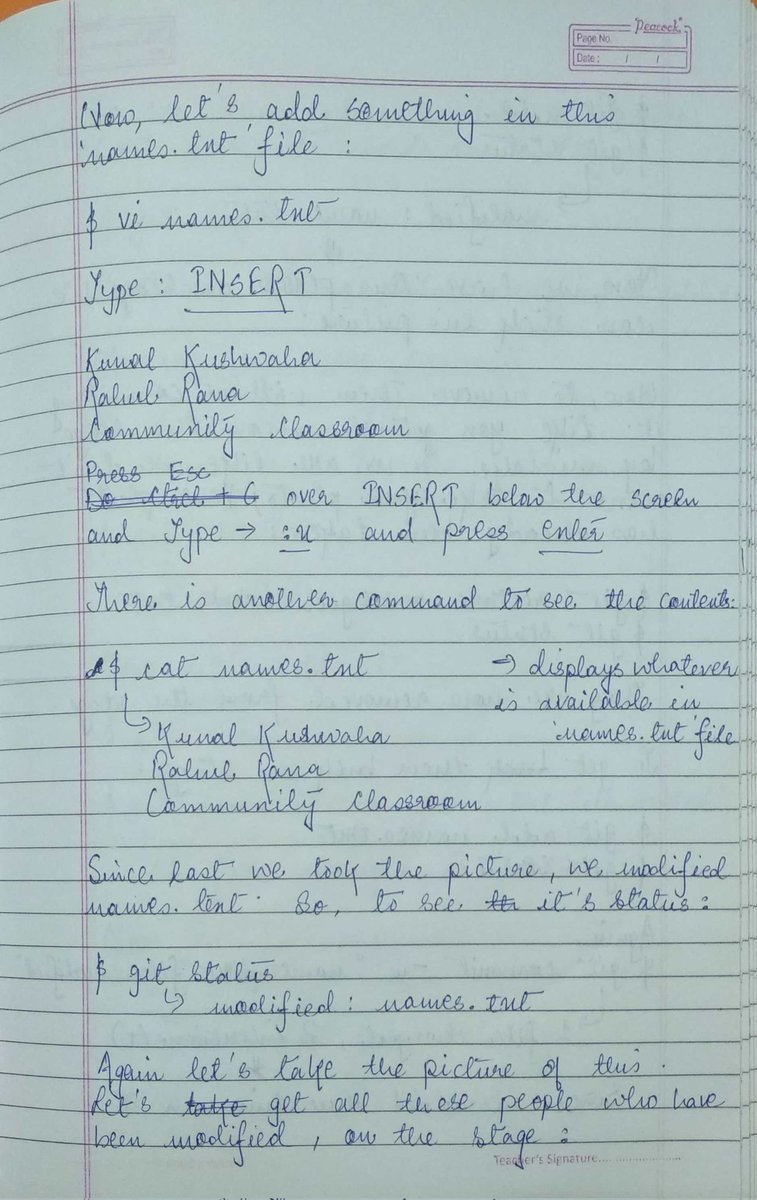 "Peacock"
Page No.
Date : / /
Now, let's add something in this
'names.txt' file :
$ vi names.txt
Type : INSERT
Kunal Kushwaha
Rahul Rana
Community Classroom
Press Esc
Do ctrl + C over INSERT below the screen
and Type → :x and press enter
There is another command to see the contents:
$ cat names.txt → displays whatever
is available in
↳ Kunal Kushwaha 'names.txt' file
Rahul Rana
Community Classroom
Since last we took the picture, we modified
names.text. So, to see th it's status:
$ git status
↳ modified : names.txt
Again let's take the picture of this.
Let's take get all these people who have
been modified, on the stage :
Teacher's Signature